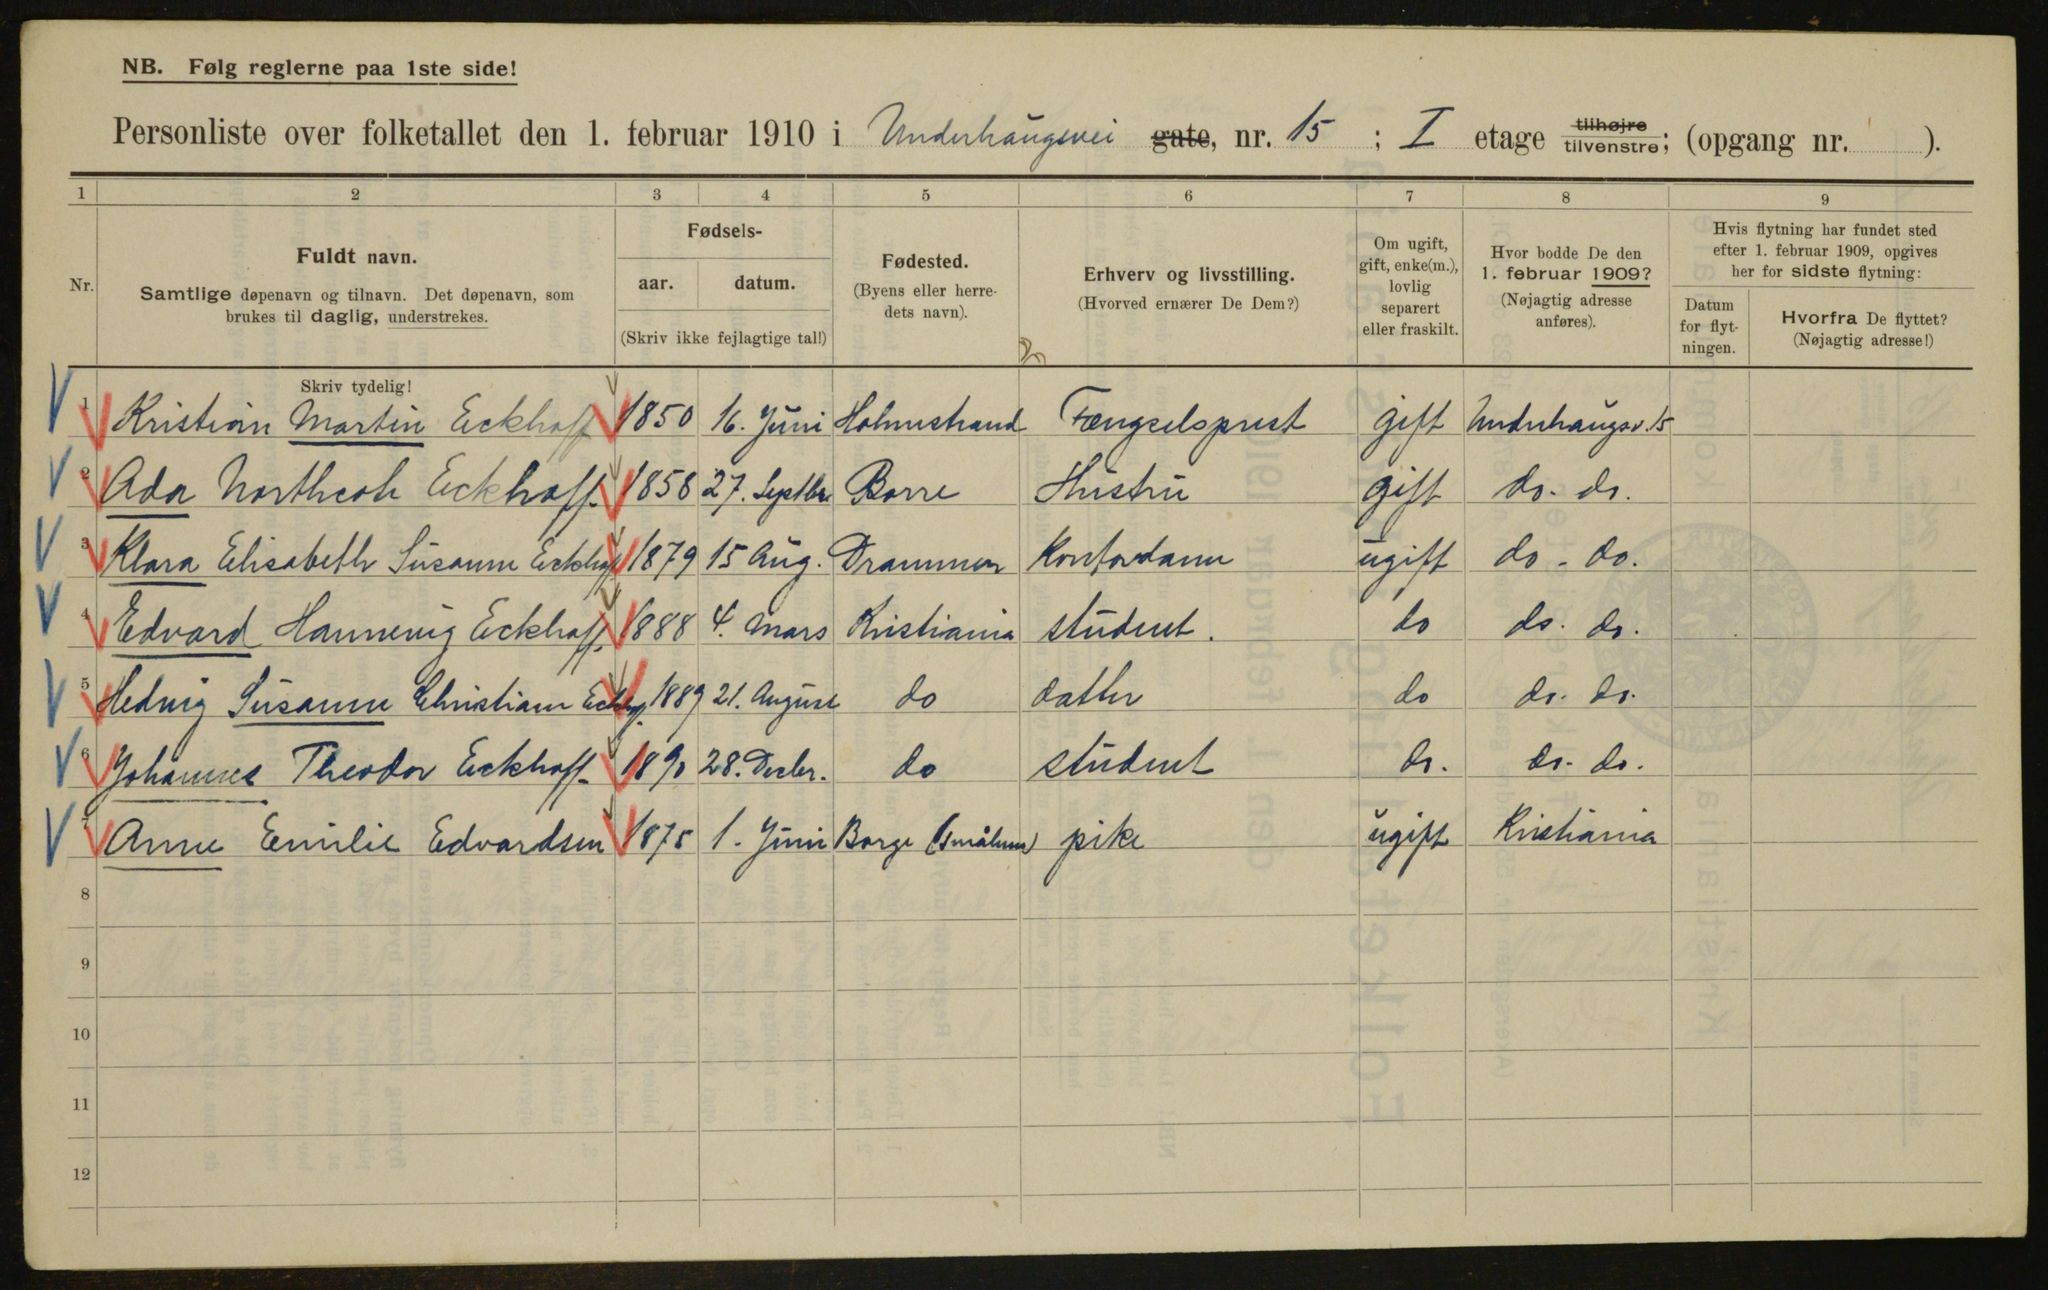 NB. Følg reglerne paa 1ste side!
Personliste over folketallet den 1. februar 1910 i Underhaugsvei gate, nr. 15 ; I etage tilhøjre tilvenstre; (opgang nr. ).
1 2 3 4 5 6 7 8 9
Nr.
Fuldt navn.
Samtlige døpenavn og tilnavn. Det døpenavn, som
brukes til daglig, understrekes.
Fødsels-
aar. datum.
(Skriv ikke fejlagtige tal!)
Fødested.
(Byens eller herre-
dets navn).
Erhverv og livsstilling.
(Hvorved ernærer De Dem?)
Om ugift,
gift, enke(m.),
lovlig
separert
eller fraskilt.
Hvor bodde De den
1. februar 1909?
(Nøjagtig adresse
anføres).
Hvis flytning har fundet sted
efter 1. februar 1909, opgives
her for sidste flytning:
Datum
for flyt-
ningen.
Hvorfra De flyttet?
(Nøjagtig adresse!)
Skriv tydelig!
1 Kristian Martin Eckhoff 1850 16. Juni Holmestrand Fængselsprest gift Underhaugsv. 15
2 Ada Northcote Eckhoff 1858 27. Septbr Borre Hustru gift do. do.
3 Klara Elisabeth Susanne Eckhoff 1879 15 Aug. Drammen Kontordame ugift do - do.
4 Edvard Hannenig Eckhoff 1888 4. Mars Kristiania student. do do. do.
5 Hedvig Susanne Christiane Eckhoff 1889 21. August do datter do do. do.
6 Johannes Theodor Eckhoff 1890 28. Decbr. do student do. do. do.
7 Anne Emilie Edvardsen 1875 1. Juni Borge (Smålene) pike ugift Kristiania
8
9
10
11
12